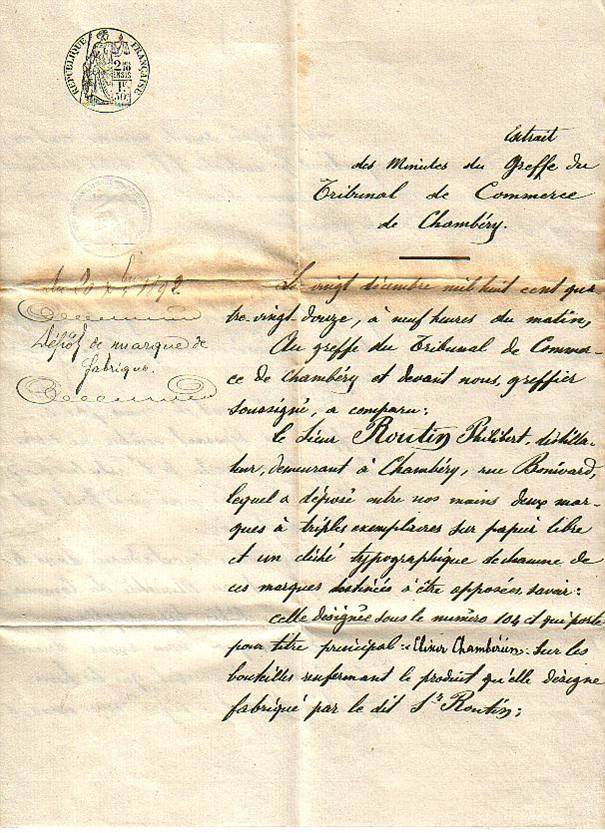 RÉPUBLIQUE FRANÇAISE
Extrait
des Minutes du Greffe du
Tribunal de Commerce
de Chambéry.
Le vingt décembre mil huit cent qua-
tre-vingt-douze, à neuf heures du matin,
Au greffe du Tribunal de Commer-
ce de Chambéry et devant nous, greffier
soussigné, a comparu:
le Sieur Routin Philibert, distilla-
teur, demeurant à Chambéry, rue Bonivard,
lequel a déposé entre nos mains deux mar-
ques à triples exemplaires sur papier libre
et un cliché typographique de chacune de
ces marques destinées à être apposées, savoir:
celle désignée sous le numéro 104 et qui porte
pour titre principal: Elixir Chambérien: sur les
bouteilles renfermant le produit qu'elle désigne
fabriqué par le dit Sr Routin;
du 20 1892
Dépôt de marque de
fabrique.